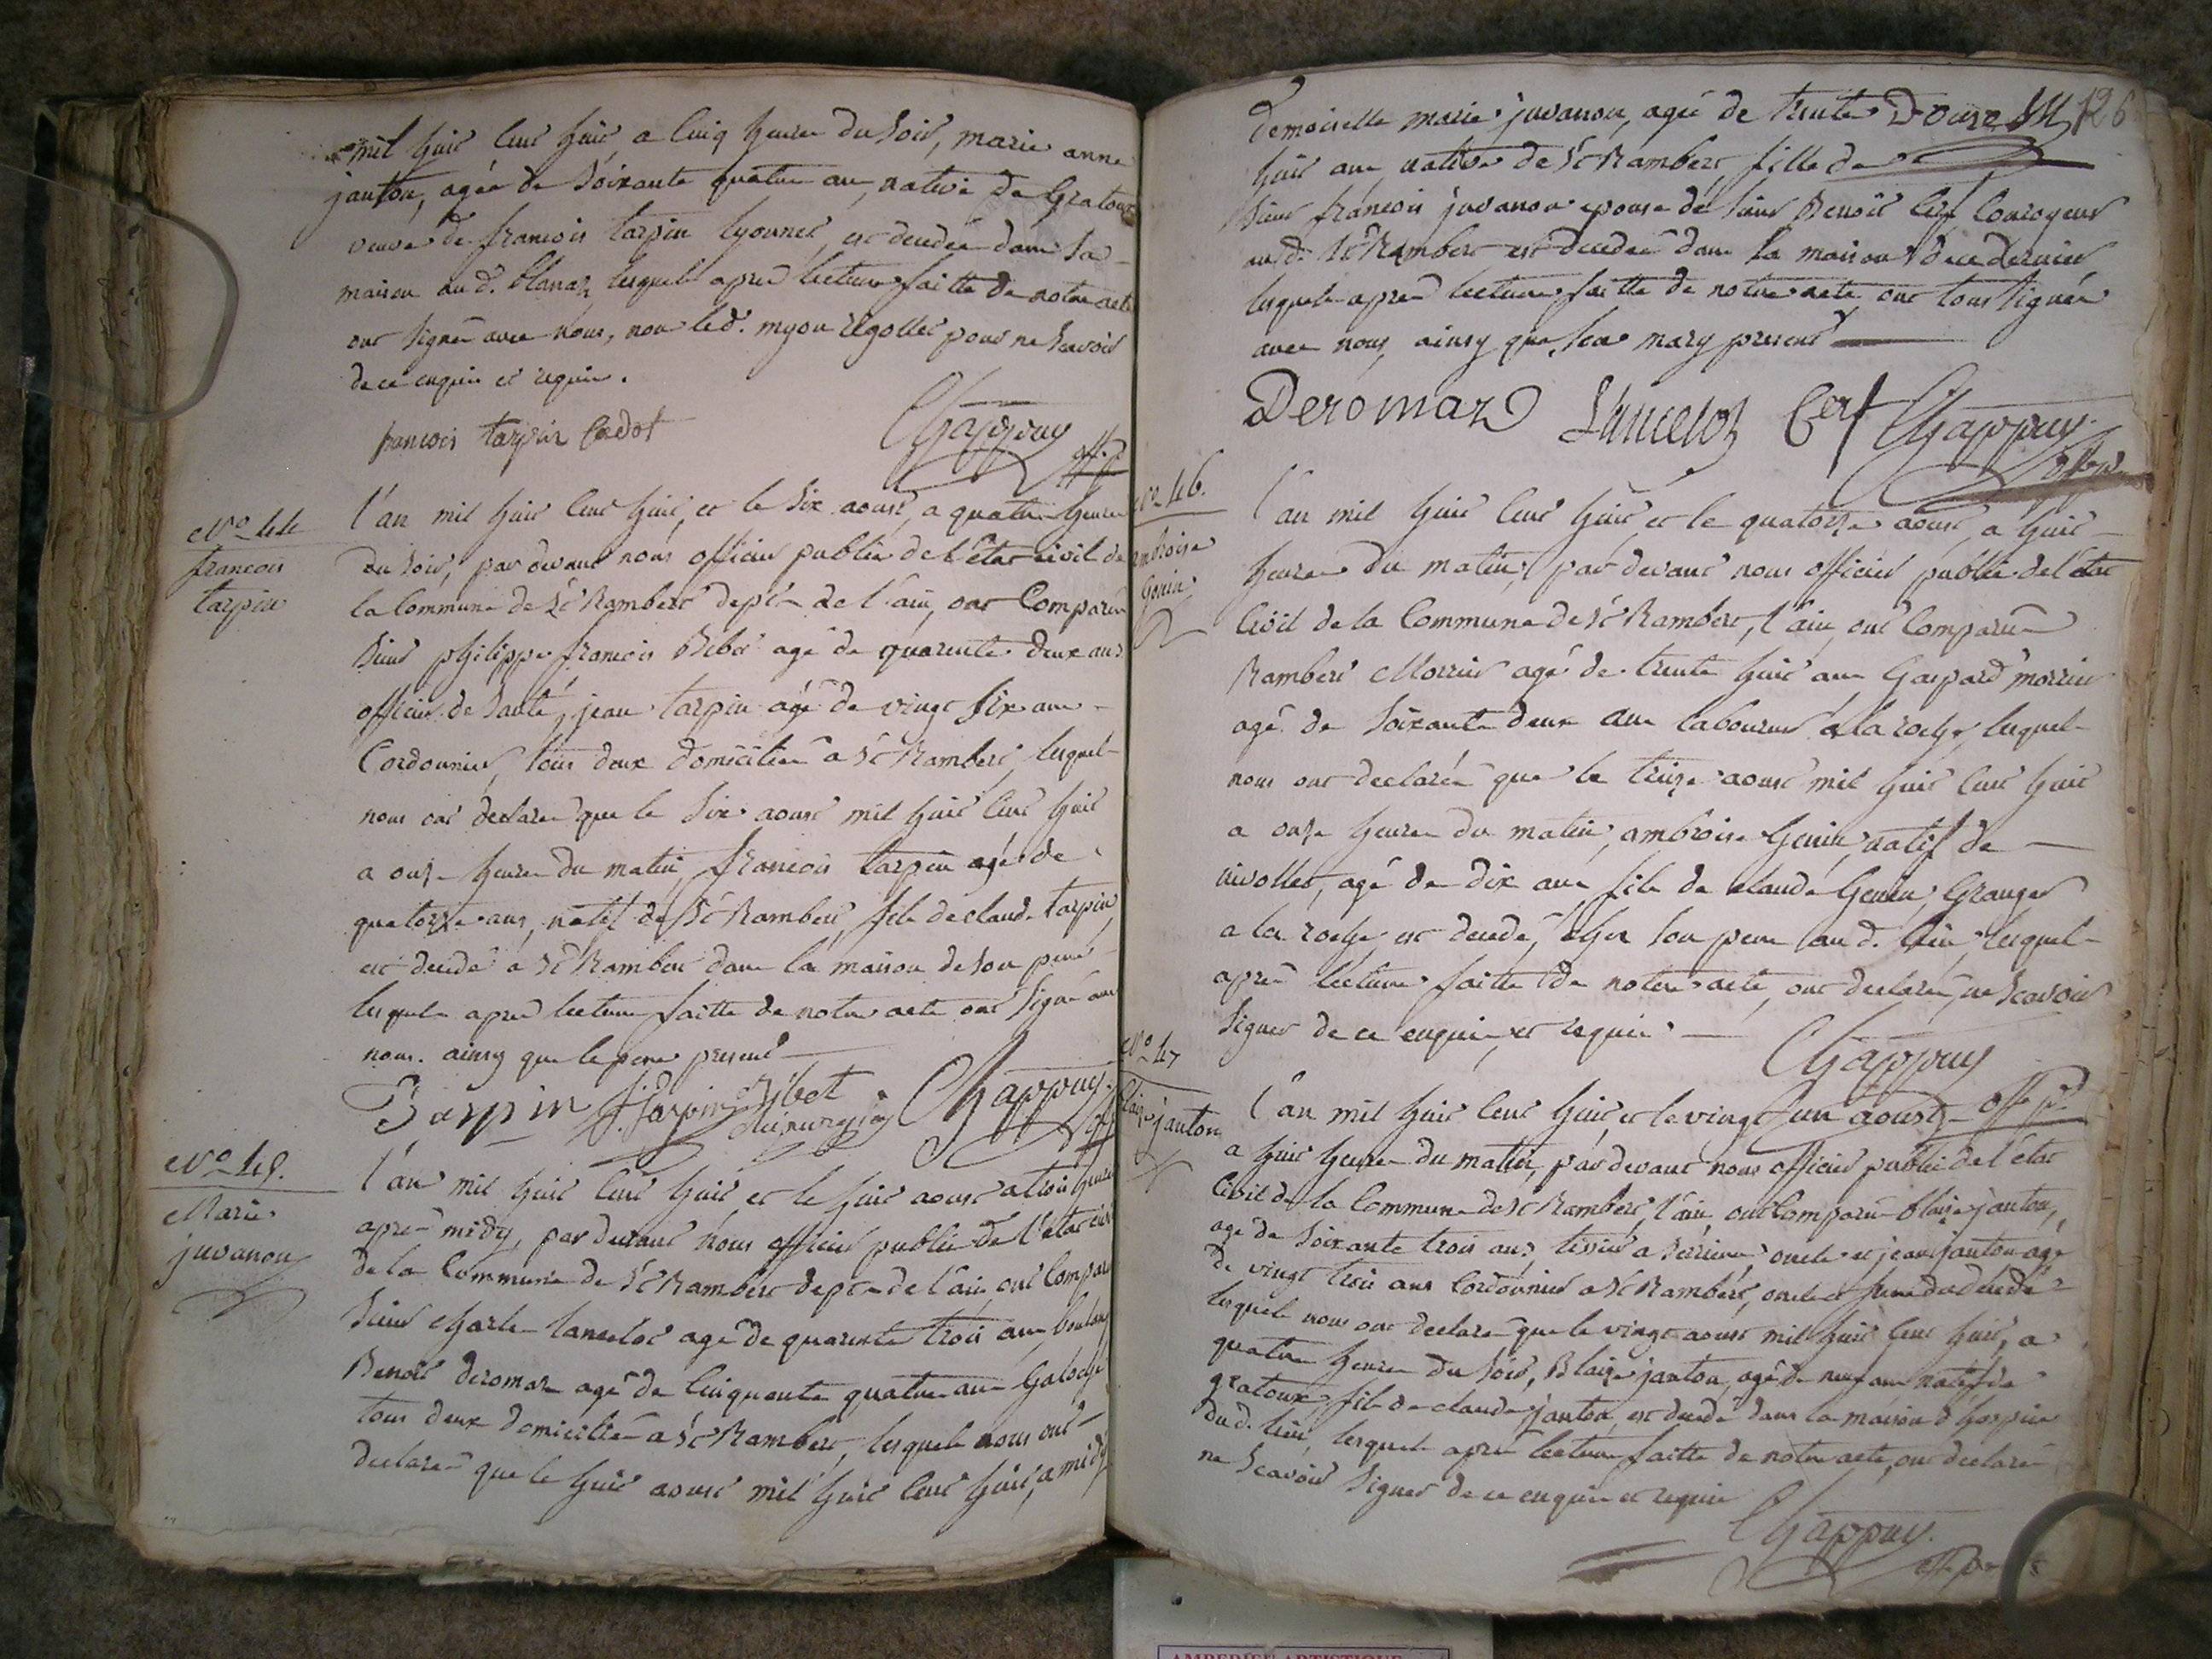 mil huit cent huit, a cinq heures du soir, marie anne
janton, agée de soixante quatre ans, native de Gratoux
veuve de francois tarpin lyonnet, est decedée dans sa
maison aud. blanaz, lesquels apres lecture faitte de notre acte
ont signé avec nous, non led. myon rigollet pour ne scavoir
de ce enquis et requis.
francois tarpin Cadot
Chappuy
off. p.
N.o 44
francois
tarpin
L'an mil huit cent huit, et le six aoust, a quatre heures
du soir, par devant nous officier public de l'état civil de
la Commune de St Rambert dept de l'ain, ont Comparu
sieur philippe francois Bibet agé de quarente deux ans
officier de santé, jean tarpin agé de vingt six ans
Cordonnier, tous deux domiciliés a St Rambert, lesquels
nous ont declaré que le six aoust mil huit cent huit
a onze heures du matin, francois tarpin agé de
quatorze ans, natif de St Rambert, fils de claude tarpin,
est decedé a St Rambert dans la maison de son pere
lesquels apres lecture faitte de notre acte ont signé avec
nous. ainsy que le pere present
Tarpin J. Tarpin Bibot Chappuy
off
N.o 45.
Marie
juvanon
L'an mil huit cent huit, et le huit aoust a trois heures
apres midy, par devant nous officier public de l'etat civil
de la Commune de St Rambert dept de l'ain, ont Comparu
sieur Charles lancelot agé de quarente trois ans,
Benoit deromaz agé de Cinquante quatre ans
tous deux domiciliés a St Rambert, lesquels nous ont
declaré que le huit aoust mil huit cent huit, a midy
126
Demoiselle marie juvanon, agée de trente Douze
huit ans native de St Rambert fille de
sieur francois juvanon epouse de sieur Benoit Cerf Conroyeur
aud. St Rambert est decedée dans la maison de ce dernier
lesquels apres lecture faitte de notre acte ont tous signés
avec nous, ainsy que son mary present
Deromaz Lancelot Cerf Chappuy
off p.
N.o 46.
ambroise
Genin
L'an mil huit cent huit et le quatorze aoust, a huit
heures du matin, par devant nous officier public de l'état
Civil de la Commune de St Rambert, l'ain, ont Comparu
Rambert Morrier agé de trente huit ans Gaspard morrier
agé de soixante deux ans laboureurs a la roche, lesquels
nous ont declaré que le treize aoust mil huit cent huit
a onze heures du matin, ambroise Genin, natif de
nivollet, agé de dix ans fils de claude Genin, Granger
a la roche est decedé, chez son pere aud. lieu, lesquels
apres lecture faitte de notre acte, ont declaré ne scavoir
signer de ce enquis et requis.
Chappuy
off. p.
N.o 47
blaize janton
L'an mil huit cent huit et le vingt un aoust
a huit heures du matin, par devant nous officier public de l'état
Civil de la Commune de St Rambert, l'ain, ont Comparu blaize janton,
agé de soixante trois ans, tissier a serrieres, oncle et jean janton agé
de vingt trois ans Cordonnier a St Rambert, oncle et frere du decedé
lesquels nous ont declaré que le vingt aoust mil huit cent huit, a
quatre heures du soir, Blaize janton, agé de neuf ans natif de
gratoux fils de claude janton, est decedé dans la maison d'hospice
dud. lieu, lesquels apres lecture faitte de notre acte, ont declaré
ne scavoir signer de ce enquis et requis
Chappuy.
off. p.
AMBERIEU ARTISTIQUE